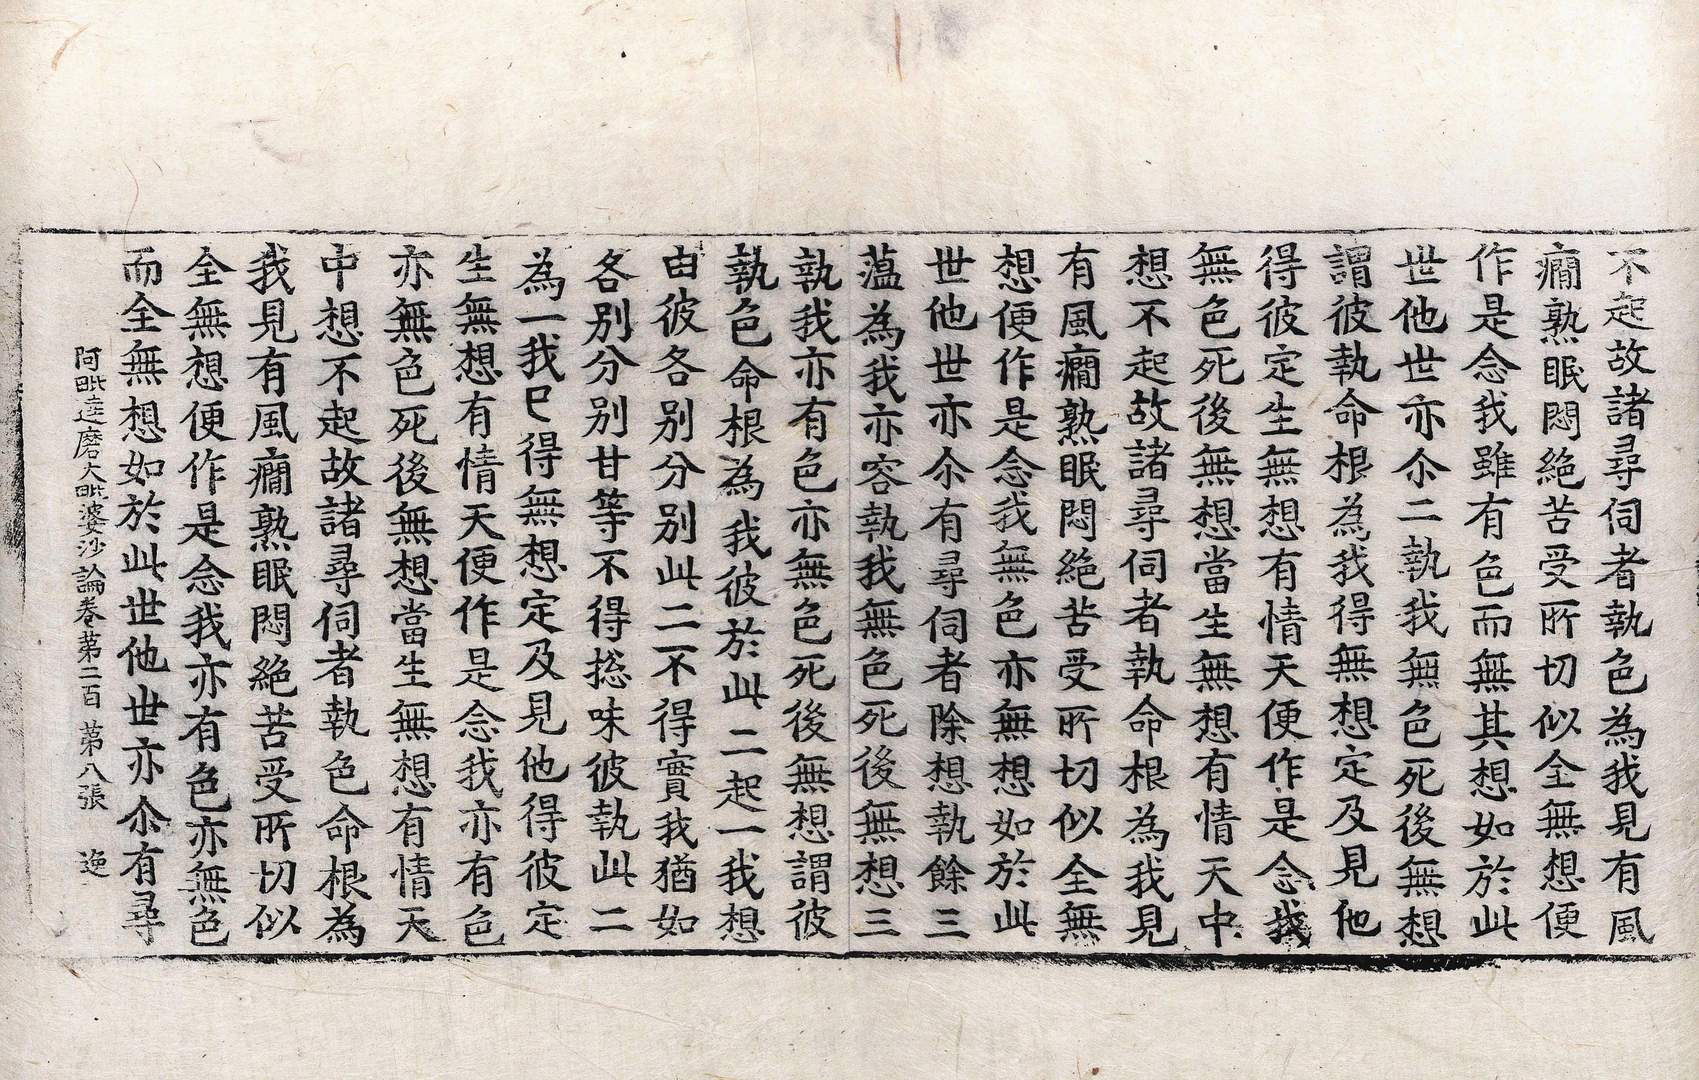 不起故諸尋伺者執色為我見有風
癎熟眠悶絕苦受所切似全無想便
作是念我雖有色而無其想如於此
世他世亦尒二執我無色死後無想
謂彼執命根為我得無想定及見他
得彼定生無想有情天便作是念我
無色死後無想當生無想有情天中
想不起故諸尋伺者執命根為我見
有風癎熟眠悶絕苦受所切似全無
想便作是念我無色亦無想如於此
世他世亦尒有尋伺者除想執餘三
薀為我亦容執我無色死後無想三
執我亦有色亦無色死後無想謂彼
執色命根為我彼於此二起一我想
由彼各別分別此二不得實我猶如
各別分別甘等不得揔味彼執此二
為一我已得無想定及見他得彼定
生無想有情天便作是念我亦有色
亦無色死後無想當生無想有情天
中想不起故諸尋伺者執色命根為
我見有風癎熟眠悶絕苦受所切似
全無想便作是念我亦有色亦無色
而全無想如於此世他世亦尒有尋
阿毗達磨大毗婆沙論卷第二百 第八張 逸